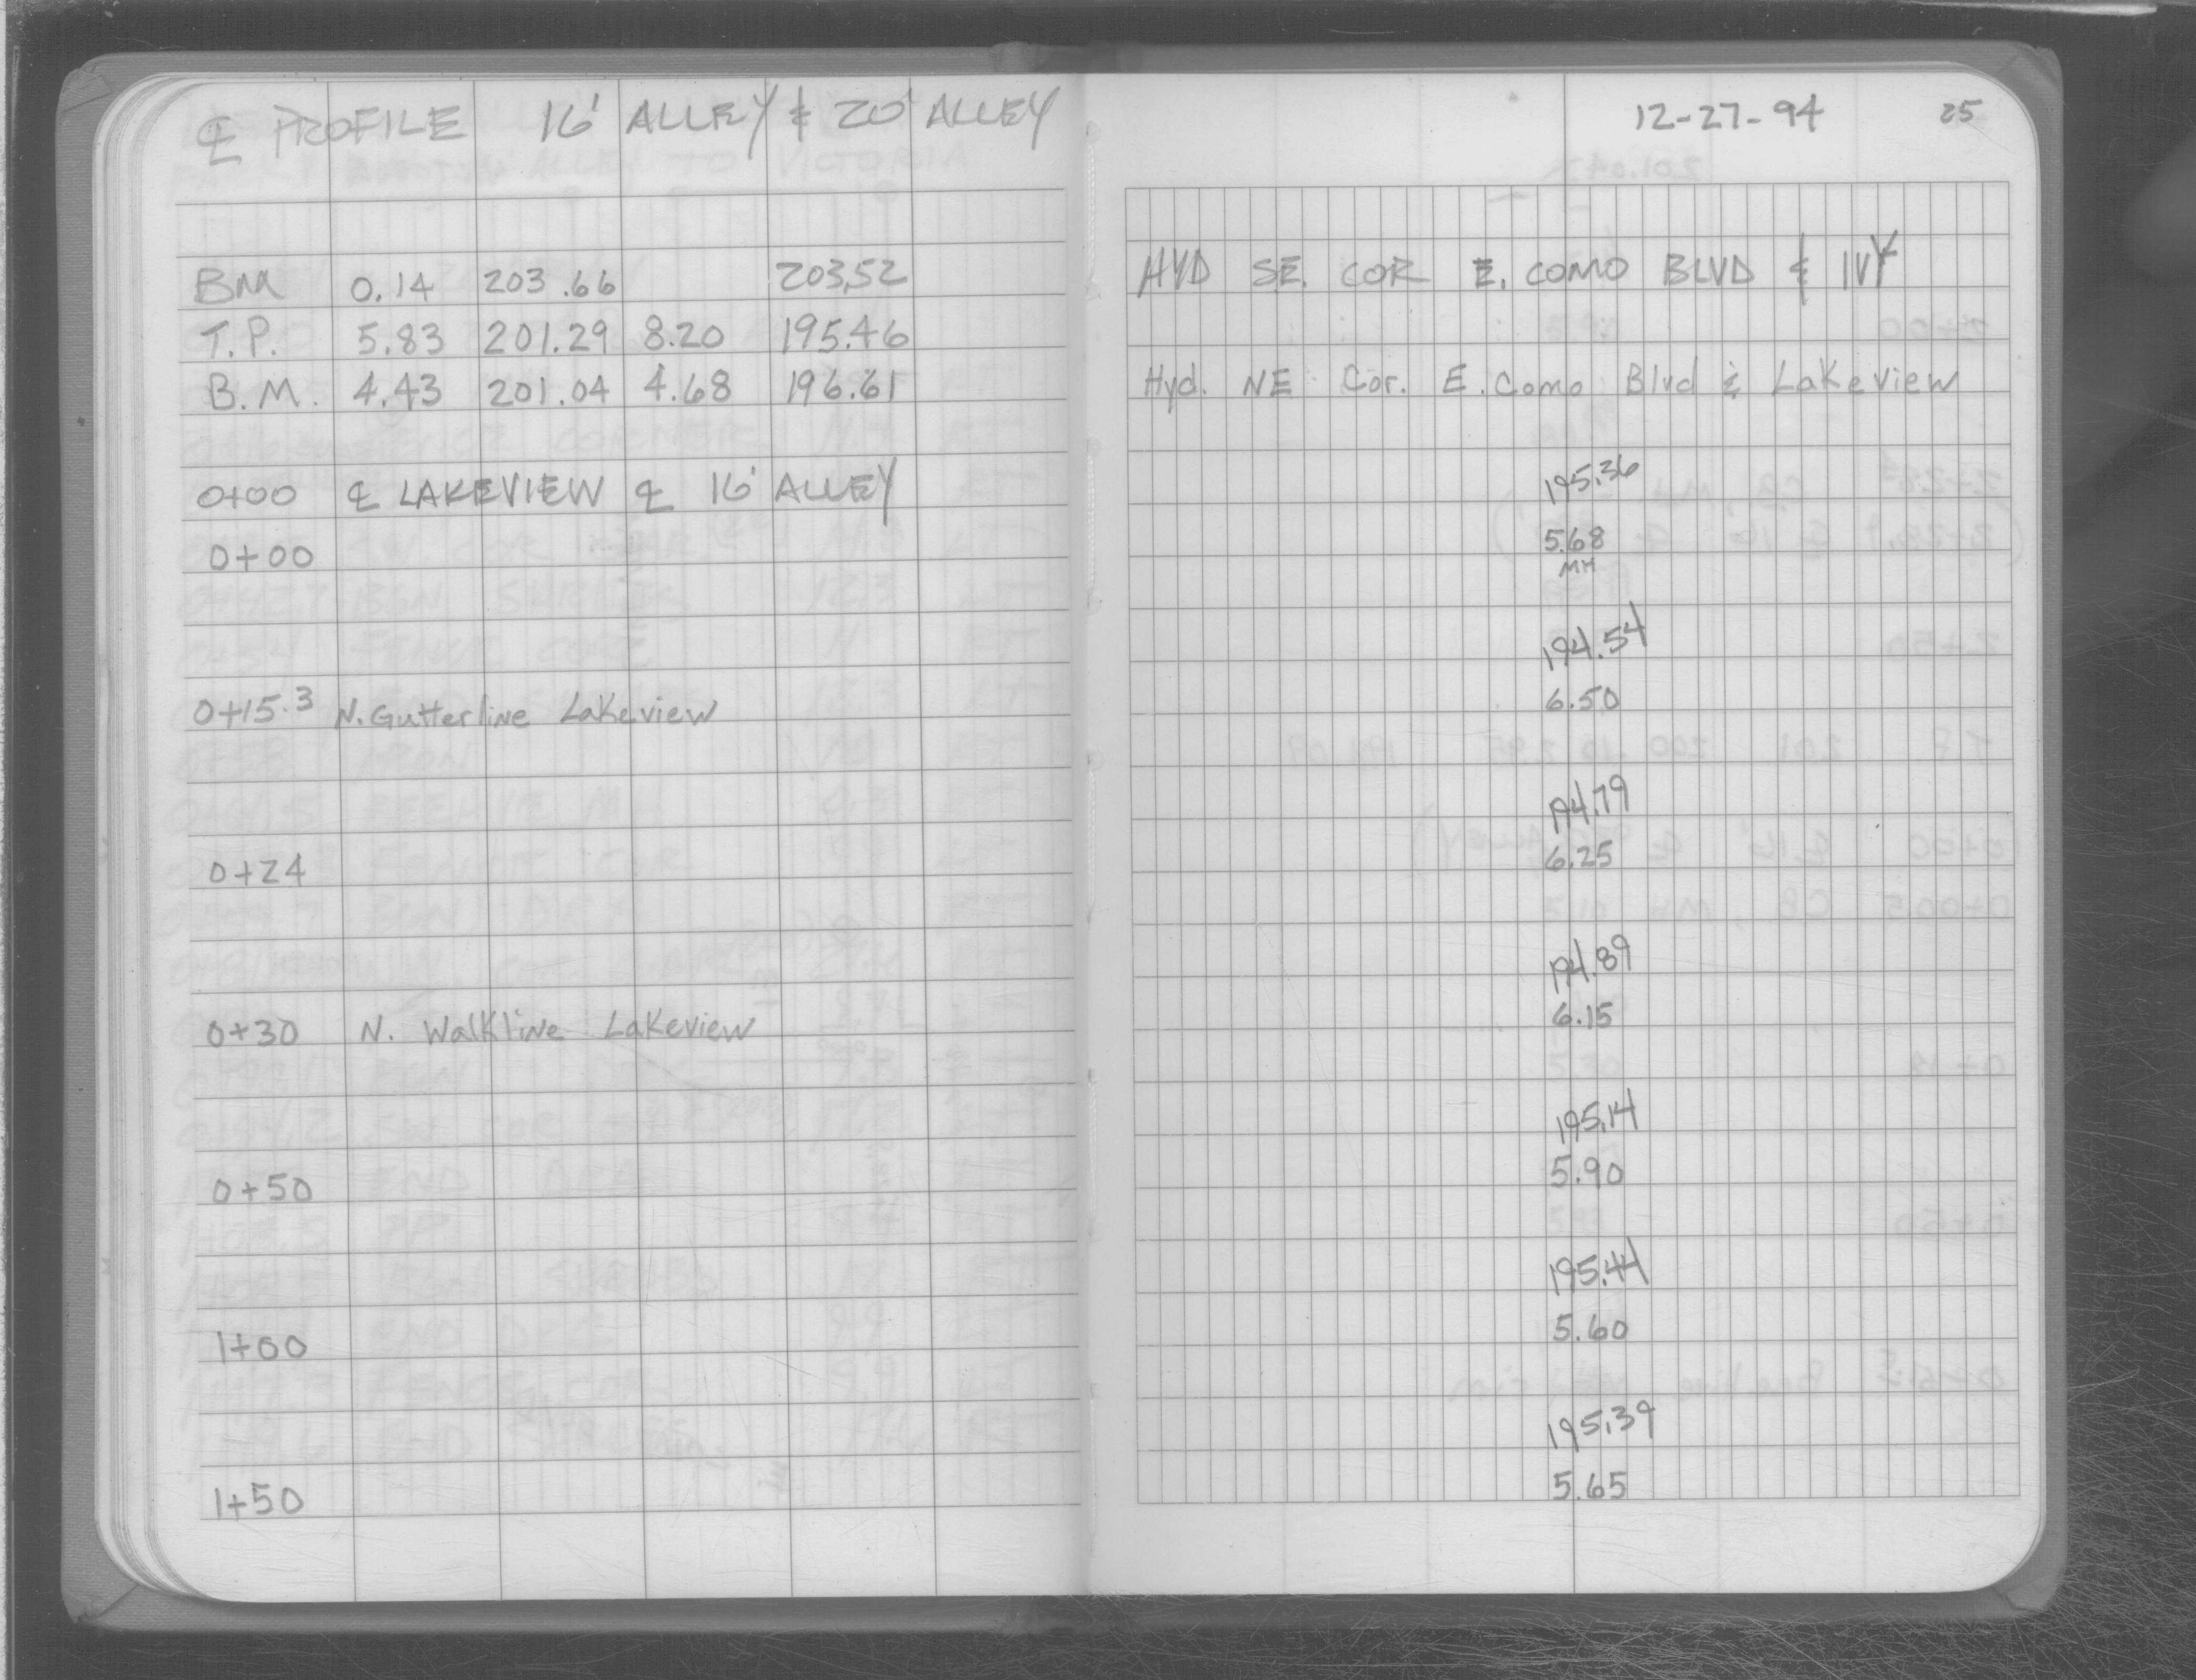 ℄ PROFILE 16' ALLEY & 20' ALLEY
12-27-94 25
BM 0.14 203.66 203.52 HYD SE. COR E. COMO BLVD & IVY
T.P. 5.83 201.29 8.20 195.46
B.M. 4.43 201.04 4.68 196.61 Hyd. NE Cor. E. Como Blvd & Lakeview
195.36
0+00 ℄ LAKEVIEW ℄ 16' ALLEY
0+00 5.68
MH
194.54
0+15.3 N. Gutterline Lakeview 6.50
194.79
0+24 6.25
194.89
0+30 N. Walkline Lakeview 6.15
195.14
0+50 5.90
195.44
1+00 5.60
195.39
1+50 5.65